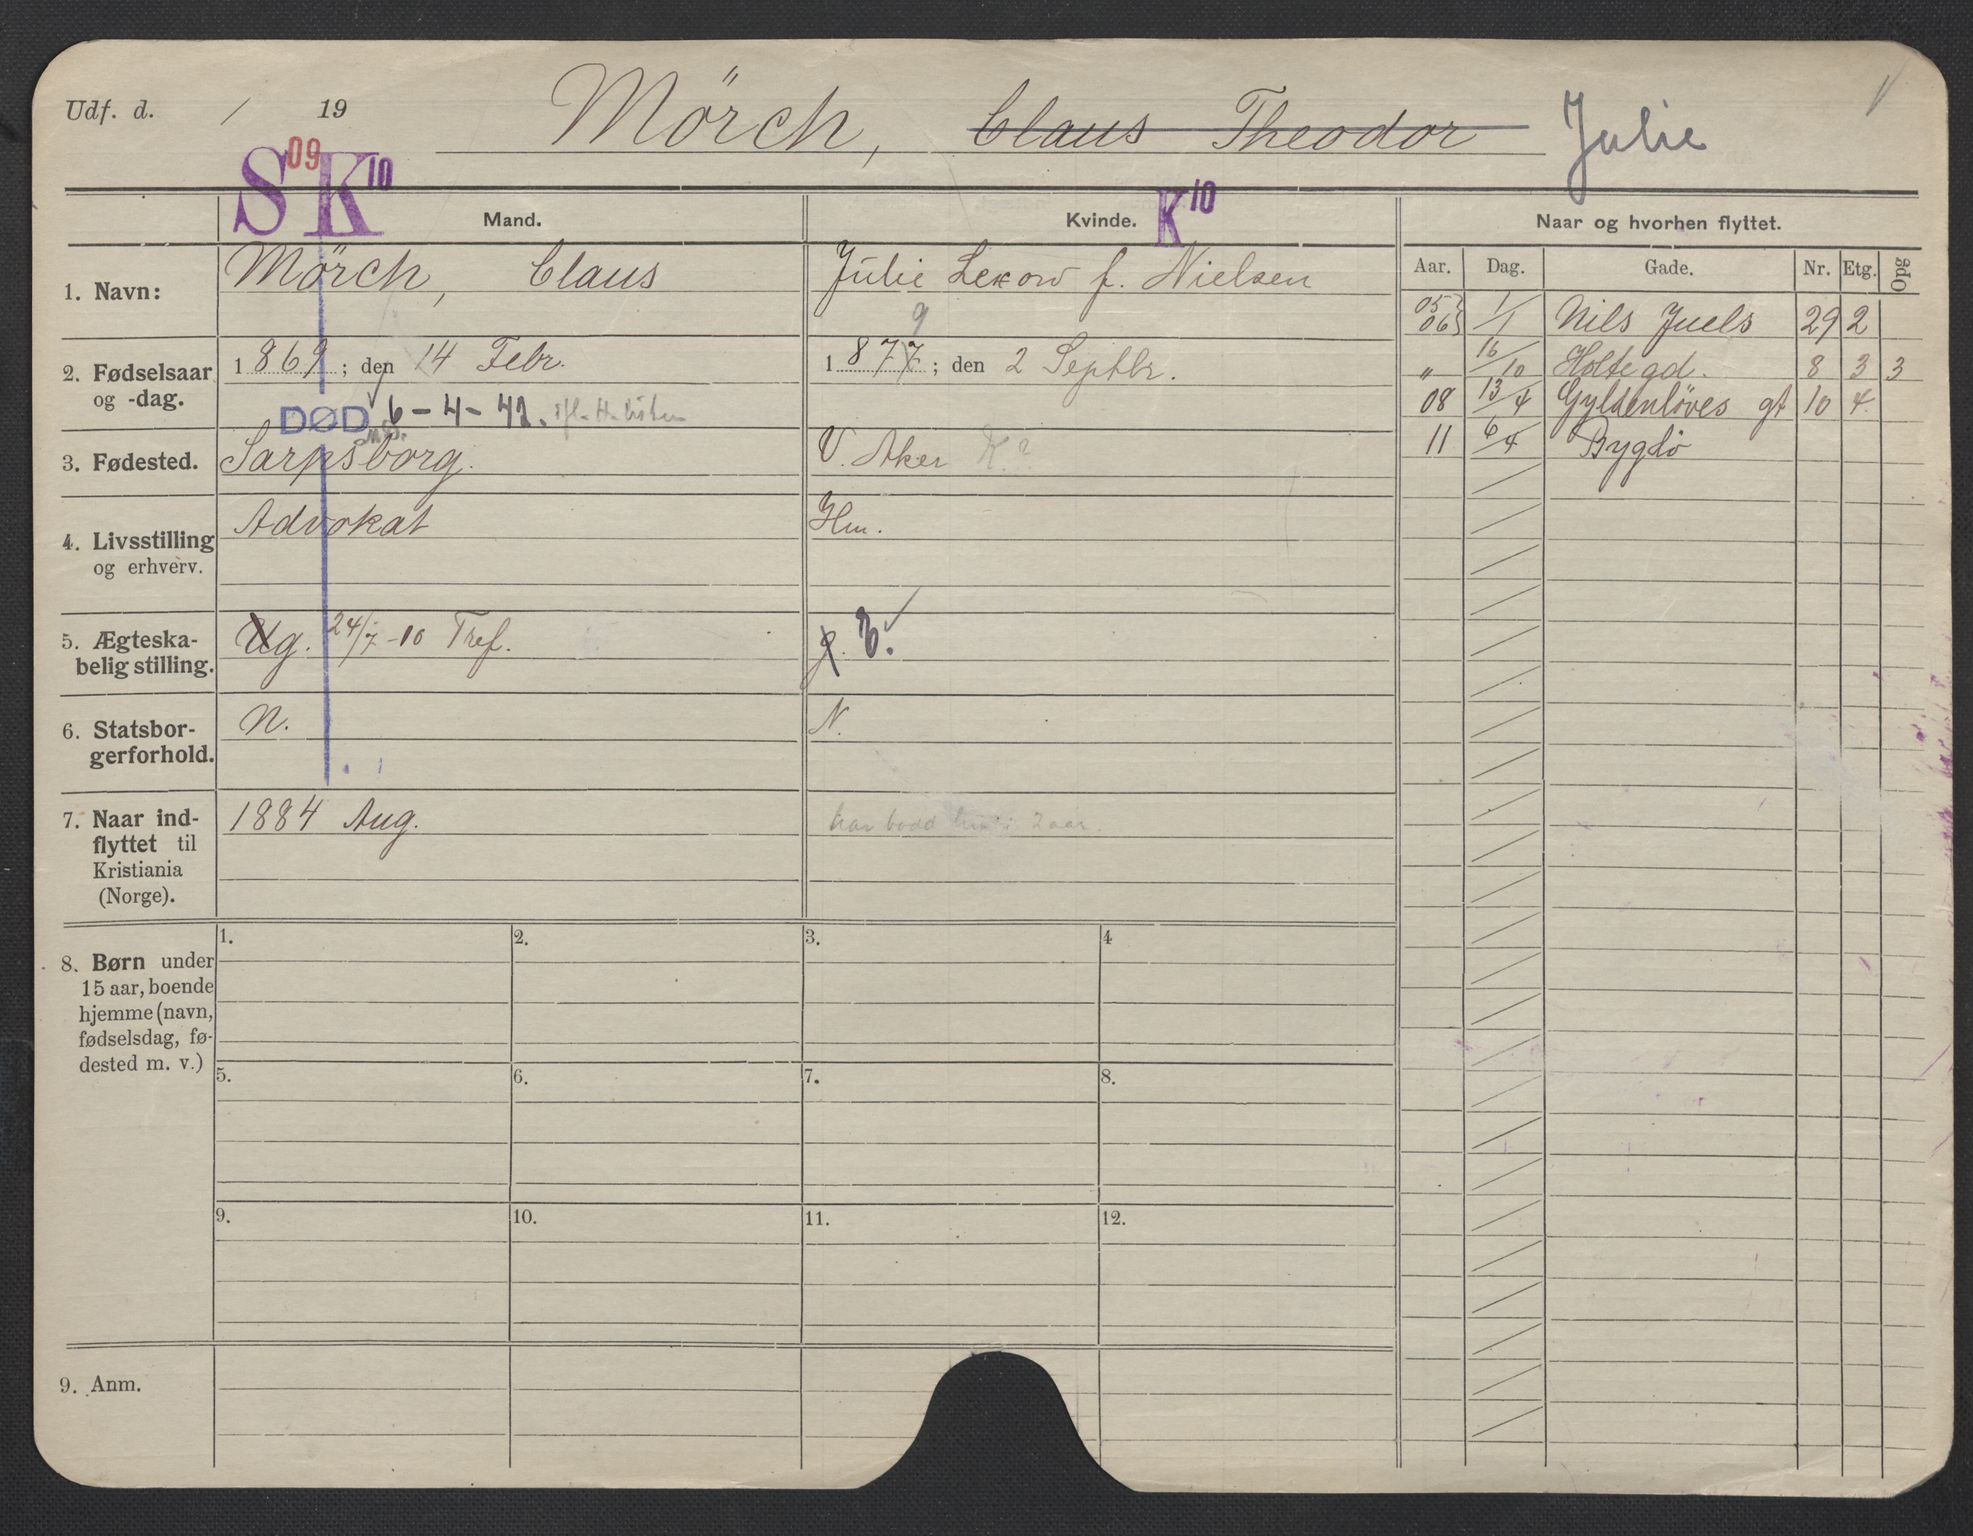 Udf. d. / 19 Mörch, Claus Theodor Julie
S 09 K 10
Mand. Kvinde. K 10 Naar og hvorhen flyttet.
Aar. Dag. Gade. Nr. Etg. Opg
1. Navn: Mörch, Claus Julie Lexow f. Nielsen
05 06 1/1 Nils Juels 29 2
9
2. Fødselsaar og -dag. 1869; den 14 Febr. 1877; den 2 Septbr.
" 16/10 Holtegd. 8 3 3
DØD 6-4-42.
08 13/4 Gyldenløves gt 10 4.
3. Fødested. Sarpsborg. V. Aker K.?
11 6/4 Bygdö
4. Livsstilling og erhverv. Advokat Hm.
5. Ægteska-
belig stilling. Ug. 24/7-10 Tref. g. E.
6. Statsbor-
gerforhold. N. N.
7. Naar ind-
flyttet til
Kristiania
(Norge). 1884 Aug. har bodd her i 2 aar.
8. Børn under
15 aar, boende
hjemme (navn,
fødselsdag, fø-
dested m. v.)
1. 2. 3. 4
5. 6. 7. 8.
9. 10. 11. 12.
9. Anm.